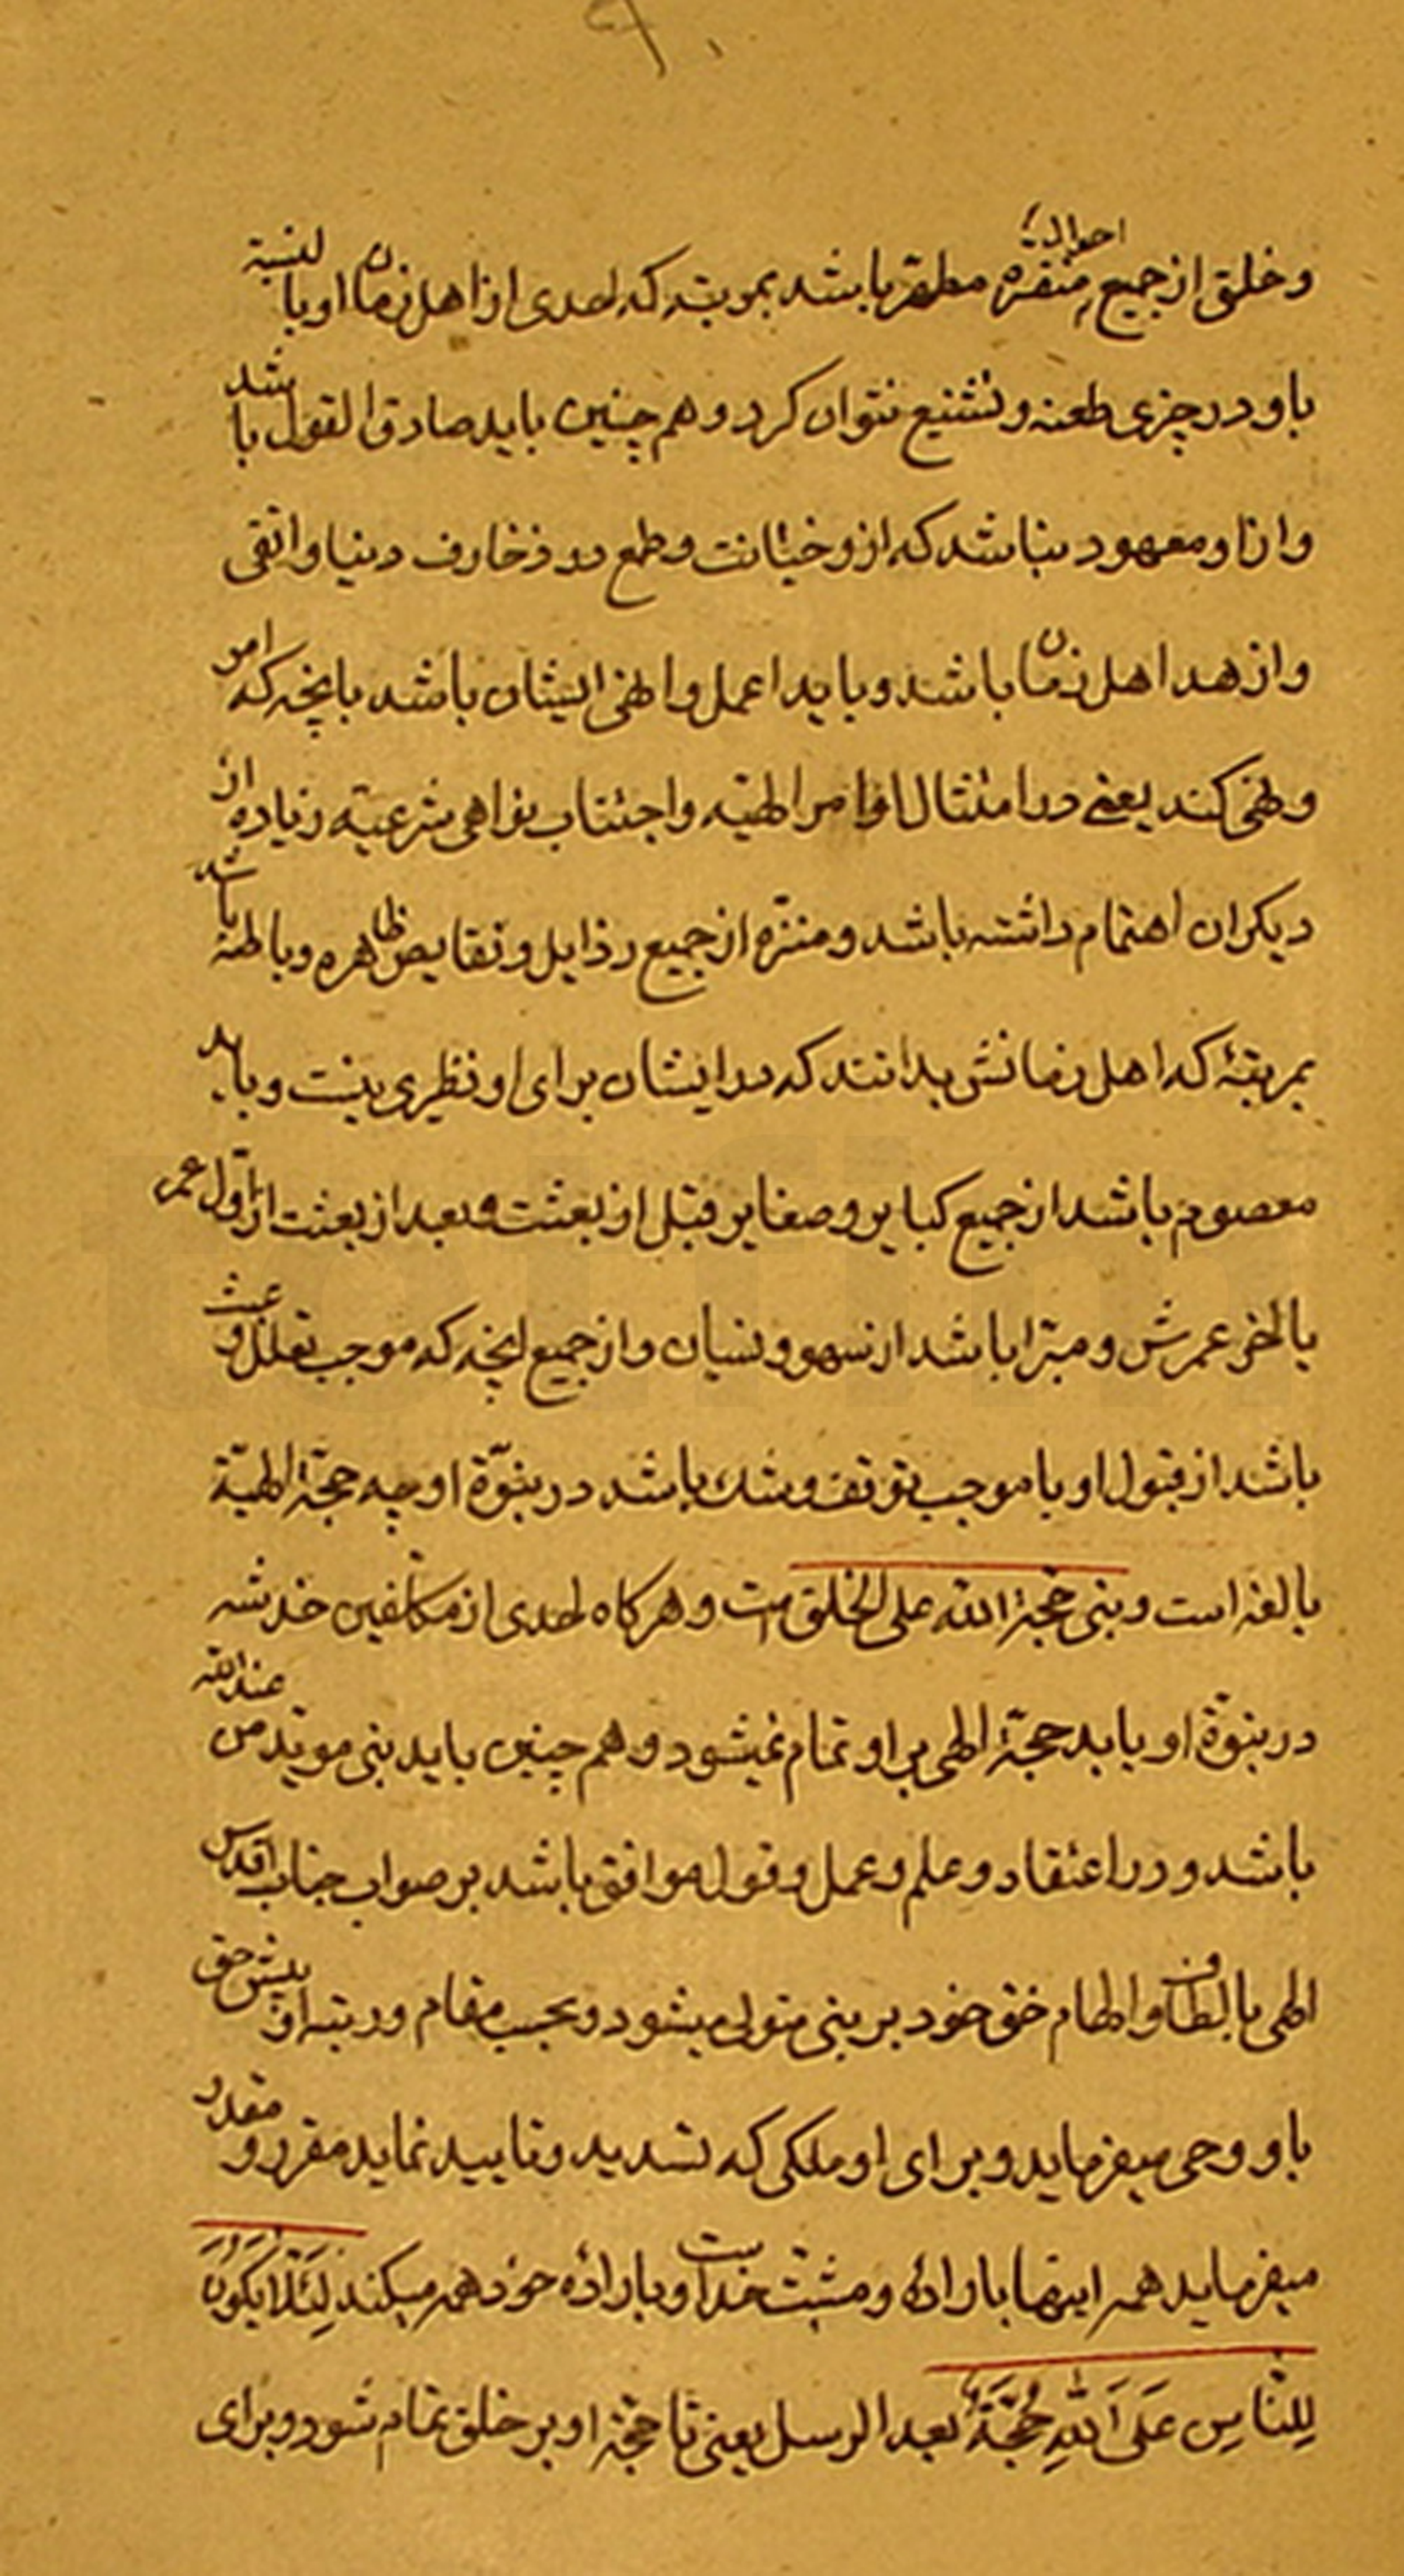 ۹۰
احوال
و خلق از جمیع منفره مطهر باشد بمرتبه که احدی از اهل زمان او با لنسبة
باو در چیزی طعنه و تشنیع نتوان کرد و هم چنین باید صادق القول باشد
و از او معهود نباشد که ازو خیانت و طمع در زخارف دنیا و اتقی
و ازهد اهل زمان باشد و باید اعمل و انهی ایشان باشد بانچه که امر
و نهی کند یعنی در امتثال اوامر الهیّه و اجتناب نواهی شرعیّه زیاده از
دیکران اهتمام داشته باشد و منزّه از جمیع رذایل و نقایص ظاهره و باطنه باشد
بمرتبهٔ که اهل زمانش بدانند که در ایشان برای او نظیری نیست و باید
معصوم باشد از جمیع کبایر و صغایر قبل از بعثت و بعد از بعثت از اوّل عمر
یا اخر عمرش و مبّرا باشد از سهو و نسیان و از جمیع انچه که موجب تعلل و عبث
باشد از قبول او یا موجب توقف و شك باشد در نبوّة او چه حجّة الهیّة
بالغه است و نبی حجّة الله علی الخلق است و هرکاه احدی از مکلفین خدشه
در نبوّة او یابد حجّة الهی بر او تمام نمیشود و هم چنین باید نبی موید من عند الله
باشد و در اعتقاد و علم و عمل و قول موافق باشد بر صواب جناب اقدس
الهی با لطاف و الهام خفی خود بر نبی متولی میشود و بحسب مقام و رتبه او پیش حق
باو وحی میفرماید و برای او ملکی که تسدید و تایید نماید مقرر و مقدر
میفرماید همه اینها باراده و مشیّت خداست و باراده خود همه میکند لِئَلّا یَکُونَ
لِلنّاسِ عَلَی اَللهِ حُجَّةٌ بعد الرسل یعنی تا حجّة او بر خلق تمام شود و برای